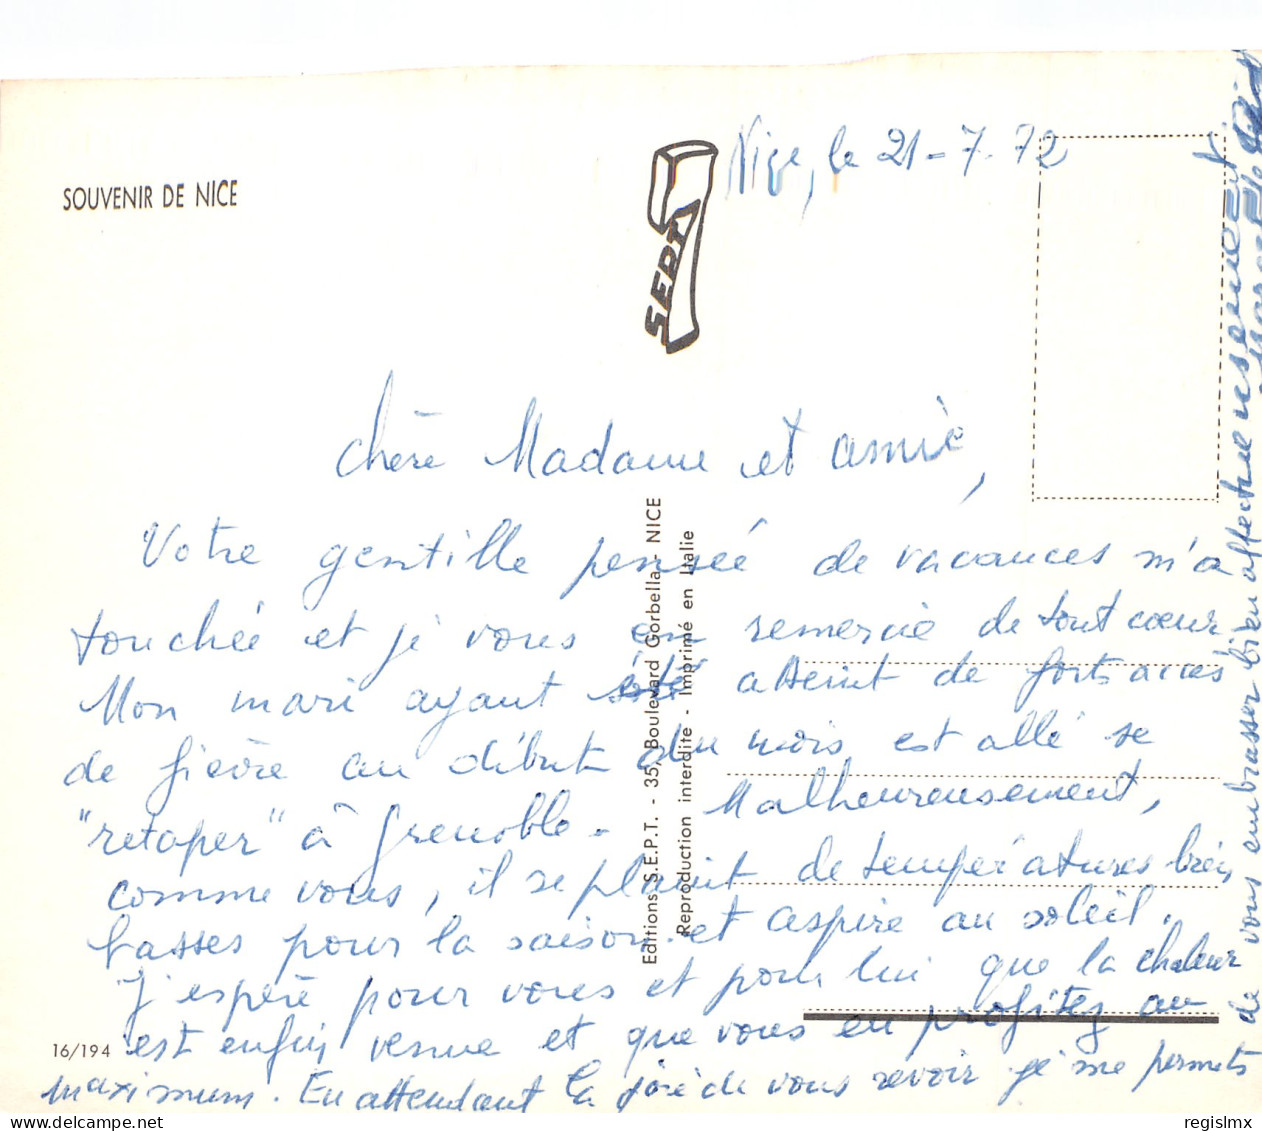 SOUVENIR DE NICE
SEPT
Nice, le 21-7.72
Chère Madame et amie,
Votre gentille pensée de vacances m'a
touchée et je vous en remercie de tout cœur
Mon mari ayant été atteint de forts accès
de fièvre au début du mois est allé se
"retaper" à Grenoble. Malheureusement,
comme vous, il se plaint de températures bien
basses pour la saison et aspire au soleil.
J'espère pour vous et pour lui que la chaleur
est enfin venue et que vous en profitez au
maximum. En attendant la joie de vous revoir je me permets
de vous embrasser bien affectueusement
16/194
Editions S.E.P.T. - 35, Boulevard Gorbella - NICE
Reproduction interdite - Imprimé en Italie
regislmx